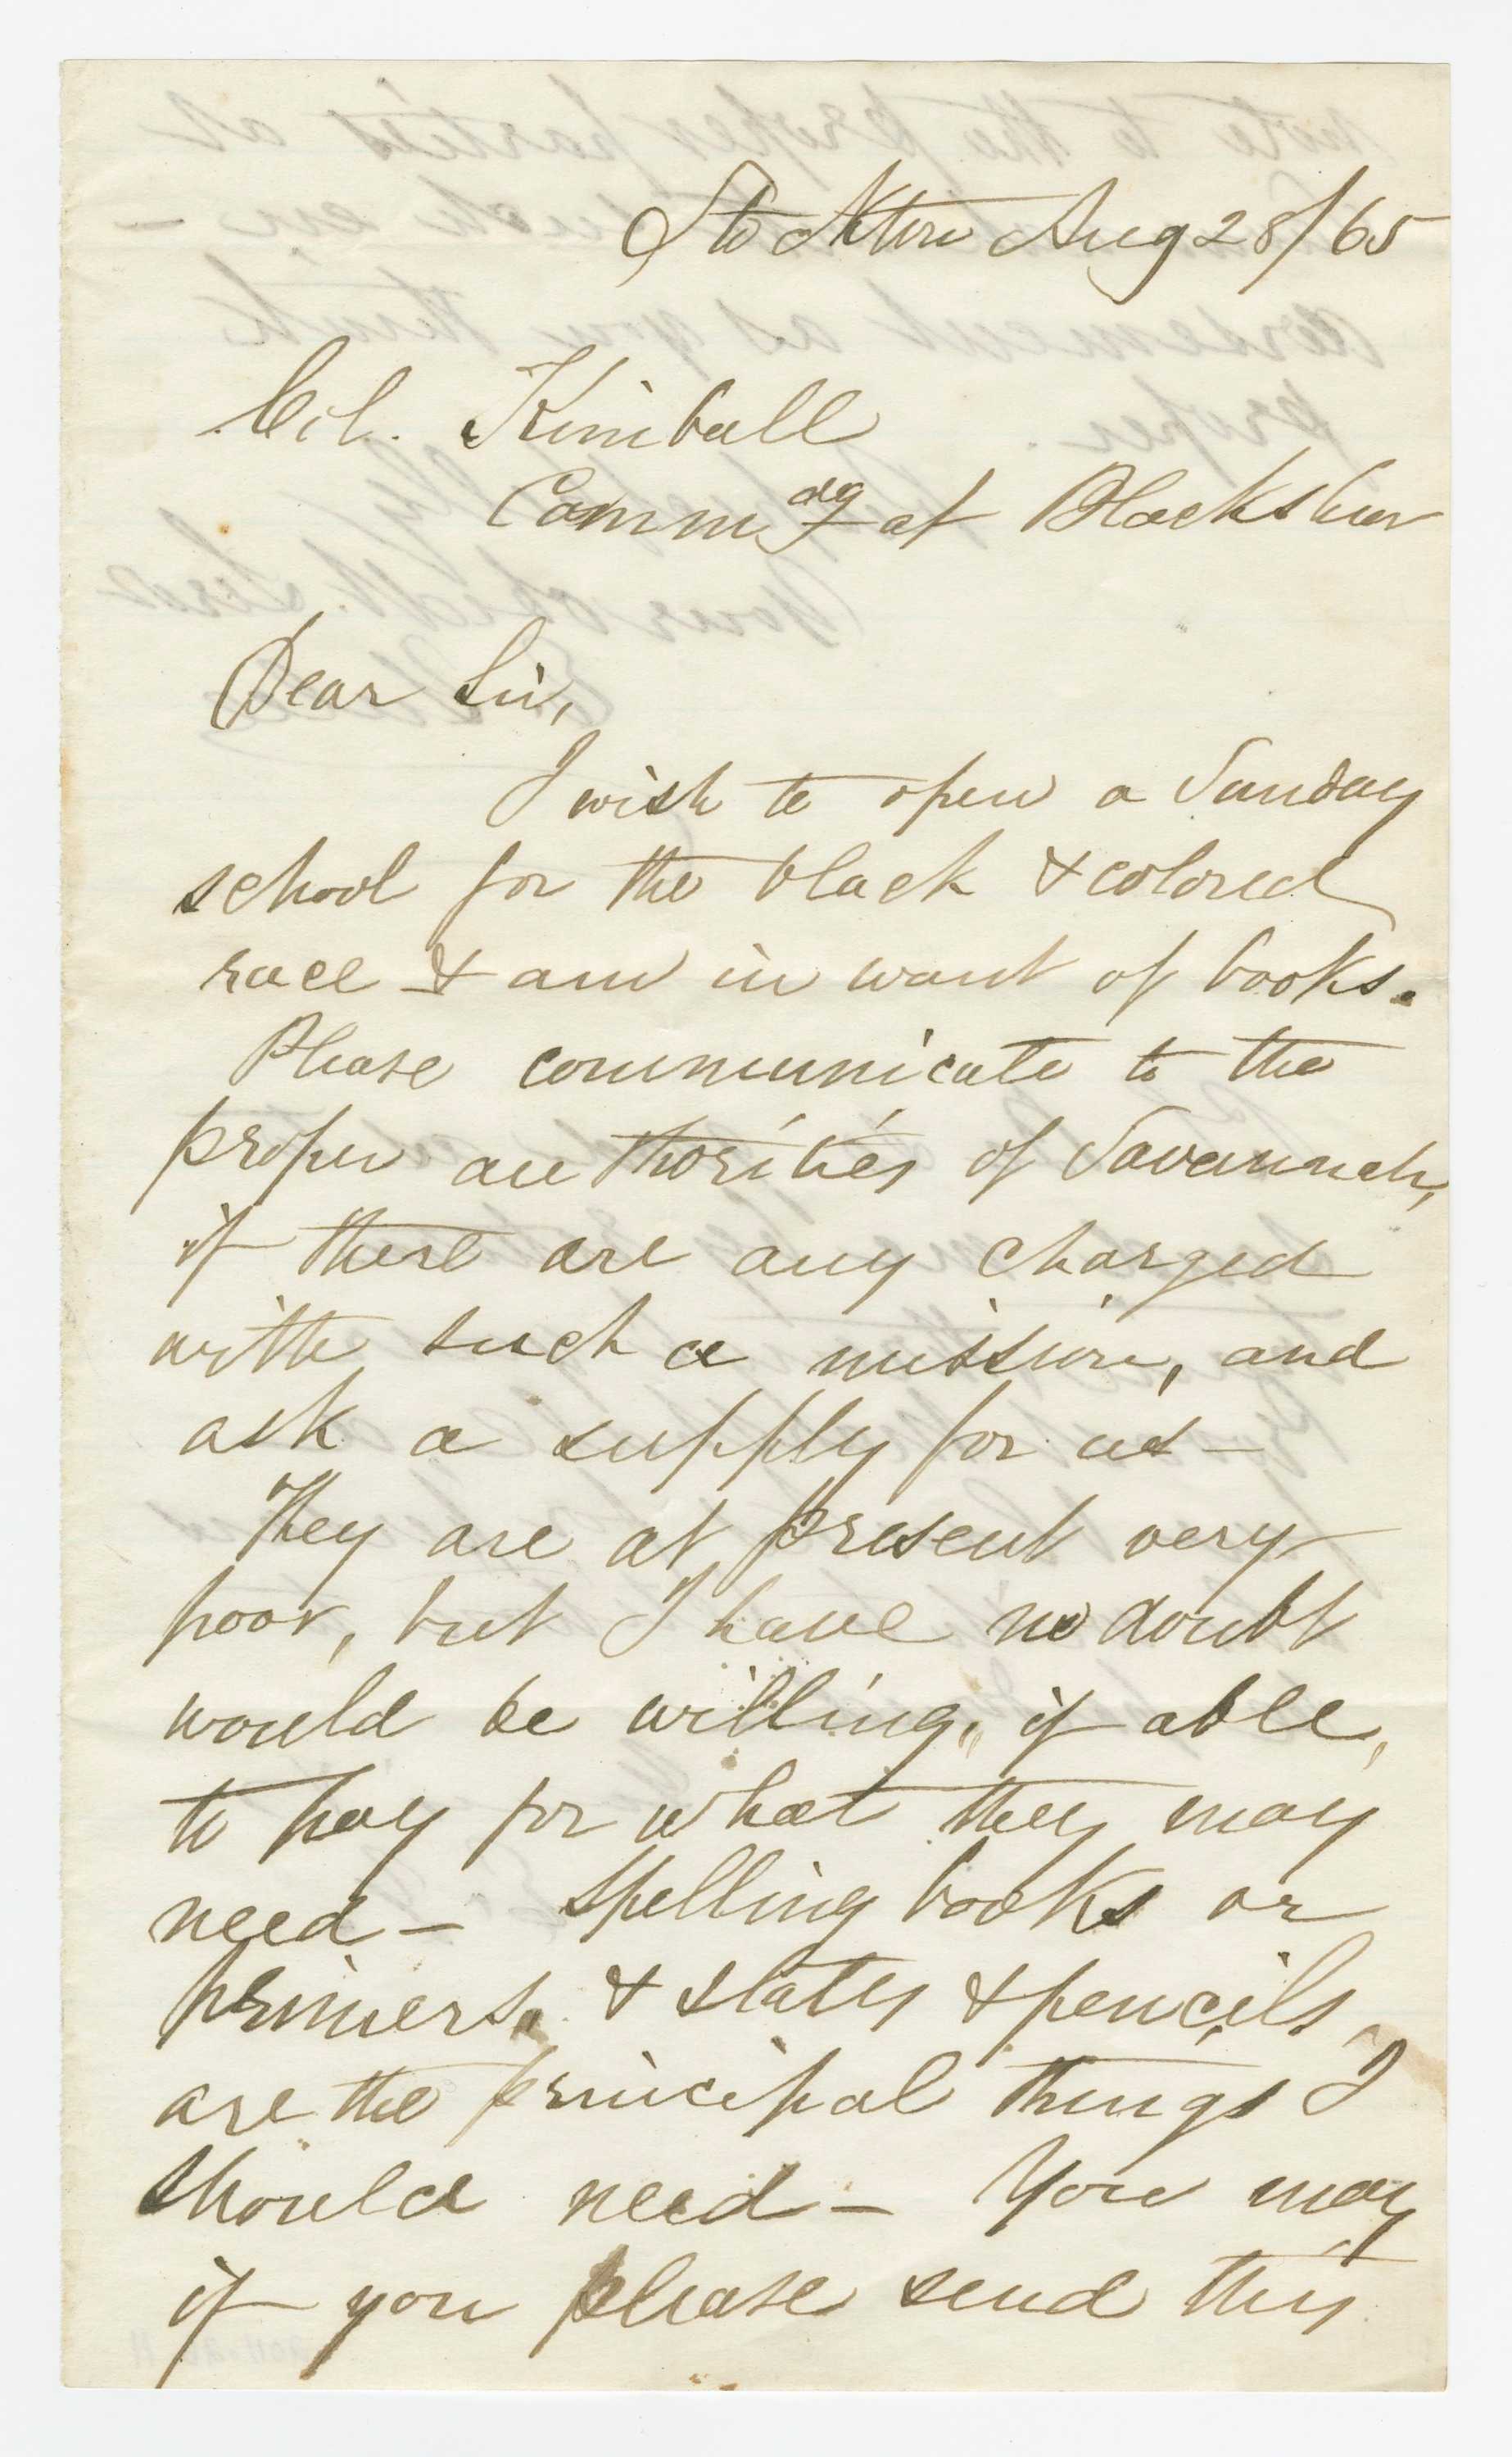 Stockton Aug 28/65
Col. Kimball
Commdg at Blackshear
Dear Sir,
I wish to open a Sunday
school for the black & colored
race & am in want of books.
Please communicate to the
proper authorities of Savannah,
if there are any charged
with such a mission, and
ask a supply for us –
They are at present very
poor, but I have no doubt
would be willing, if able,
to pay for what they may
need – Spelling books or
primers, & slates & pencils,
are the principal things I
should need – You may
if you please send this